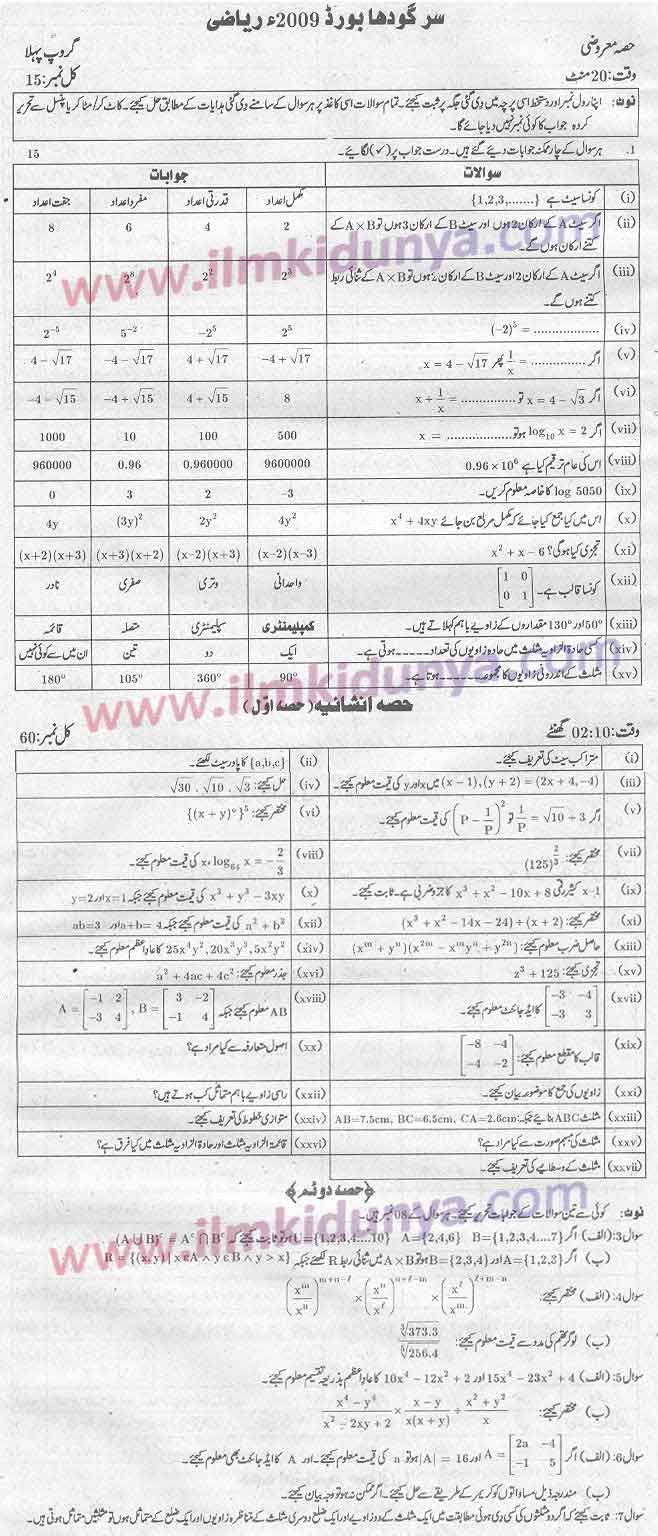 سرگودھا بورڈ 2009ء ریاضی
حصہ معروضی گروپ پہلا
وقت: 20 منٹ کل نمبر: 15
نوٹ: اپنا رول نمبر اور دستخط اسی پرچہ میں دی گئی جگہ پر ثبت کیجئے۔ تمام سوالات اسی کاغذ پر ہر سوال کے سامنے دی گئی ہدایات کے مطابق حل کیجئے۔ کاٹ کر/مٹا کر یا پنسل سے تحریر
کردہ جواب کا کوئی نمبر نہیں دیا جائے گا۔
1. ہر سوال کے چار ممکنہ جوابات دیئے گئے ہیں۔ درست جواب پر (✓) لگائیے۔ 15
سوالات جوابات
(i) کونسا سیٹ ہے {1,2,3,.......} مکمل اعداد قدرتی اعداد مفرد اعداد جفت اعداد
(ii) اگر سیٹ A کے ارکان 2 ہوں اور سیٹ B کے ارکان 3 ہوں تو A×B کے 2 4 6 8
کتنے ارکان ہوں گے۔
(iii) اگر سیٹ A کے ارکان 2 اور سیٹ B کے ارکان ہوں تو A×B کے ثنائی ربط 2² 2⁸ 2⁴
کتنے ہوں گے۔
(iv) (−2)⁵ = ................ 2⁵ −2⁵ 5⁻² 2⁻⁵
(v) اگر x = 4 − √17 پھر 1/x = ............... −4 + √17 4 + √17 −4 − √17 4 − √17
(vi) اگر x = 4 − √3 تو x + 1/x = ............... 8 4 + √15 −4 + √15 −4 − √15
(vii) اگر log₁₀ x = 2 ہو تو ............... x = 500 100 10 1000
(viii) اس کی عام ترقیم کیا ہے 0.96 × 10⁶ 9600000 0.960000 0.96 960000
(ix) log 5050 کا خاصہ معلوم کریں۔ −3 2 3 0
(x) اس میں کیا جمع کیا جائے کہ مکمل مربع بن جائے x⁴ + 4xy 4y² 2y² (3y)² 4y
(xi) تجزی کیا ہوگی؟ x² + x − 6 (x−2)(x−3) (x−2)(x+3) (x+3)(x+2) (x+2)(x+3)
(xii) کونسا قالب ہے۔ [1 0 / 0 1] واحدانی وتری صفری نادر
(xiii) 50° اور 130° مقداروں کے زاویے باہم کہلاتے ہیں۔ کمپلیمنٹری سپلیمنٹری متصلہ قائمہ
(xiv) کسی حادۃ الزاویہ مثلث میں حادہ زاویوں کی تعداد ...... ہوتی ہے۔ ایک دو تین ان میں سے کوئی نہیں
(xv) مثلث کے اندرونی زاویوں کا مجموعہ ...... ہوتا ہے۔ 90° 360° 105° 180°
حصہ انشائیہ (حصہ اوّل)
وقت: 02:10 گھنٹے کل نمبر: 60
(i) متراکب سیٹ کی تعریف کیجئے۔ (ii) {a,b,c} کا پاور سیٹ لکھئے۔
(iii) (x − 1), (y + 2) = (2x + 4, −4) میں x اور y کی قیمت معلوم کیجئے۔ (iv) حل کیجئے: √30 . √10 . √3
(v) اگر 1/P = √10 + 3 تو (P − 1/P)² کی قیمت معلوم کیجئے۔ (vi) مختصر کیجئے: {(x + y)°}⁵
(vii) مختصر کیجئے: (125)^(2/3) (viii) x، log₆₄ x = −2/3 کی قیمت معلوم کیجئے۔
(ix) x-1 کثیر رقمی x³ + x² − 10x + 8 کا جزو ضربی ہے۔ ثابت کیجئے۔ (x) x³ + y³ − 3xy کی قیمت معلوم کیجئے جبکہ x=1 اور y=2
(xi) مختصر کیجئے: (x³ + x² − 14x − 24) ÷ (x + 2) (xii) a² + b² کی قیمت معلوم کیجئے جبکہ a+b= 4 اور ab=3
(xiii) حاصل ضرب معلوم کیجئے: (xᵐ + yⁿ)(x²ᵐ − xᵐyⁿ + y²ⁿ) (xiv) 25x⁴y², 20x³y³, 5x²y² کا عاد اعظم معلوم کیجئے۔
(xv) تجزی کیجئے: z³ + 125 (xvi) جذر معلوم کیجئے: a² + 4ac + 4c²
(xvii) [−3 −4 / −3 3] کا ایڈجائنٹ معلوم کیجئے۔ (xviii) AB معلوم کیجئے جبکہ A = [−1 2 / −3 4] , B = [3 −2 / −1 4]
(xix) قالب کا مقطع معلوم کیجئے: [−8 −4 / −4 −2] (xx) اصول متعارفہ سے کیا مراد ہے؟
(xxi) زاویوں کی جمع کا موضوعہ بیان کیجئے۔ (xxii) راسی زاویے باہم متماثل کب ہوتے ہیں؟
(xxiii) مثلث ABC بنائیے جبکہ: AB=7.5cm, BC=6.5cm, CA=2.6cm (xxiv) متوازی خطوط کی تعریف کیجئے۔
(xxv) مثلث کی مبہم صورت سے کیا مراد ہے؟ (xxvi) قائمۃ الزاویہ مثلث اور حادۃ الزاویہ مثلث میں کیا فرق ہے؟
(xxvii) مثلث کے وسطانیے کی تعریف کیجئے۔
﴿حصہ دوئم﴾
نوٹ: کوئی سے تین سوالات کے جوابات تحریر کیجئے۔ ہر سوال کے 08 نمبر ہیں۔
سوال 3: (الف) اگر U={1,2,3,4....10} A={2,4,6} B={1,2,3,4....7} ہو تو ثابت کیجئے کہ (A ∪ B)ᶜ = Aᶜ ∩ Bᶜ
(ب) اگر A={1,2,3} اور B={2,3,4} ہو تو A×B میں ثنائی ربط R لکھئے جبکہ R = {(x,y) | xεA ∧ yεB ∧ y > x}
سوال 4: (الف) مختصر کیجئے: (xᵐ/xⁿ)^(m+n−ℓ) × (xⁿ/x^ℓ)^(n+ℓ−m) × (x^ℓ/xᵐ)^(ℓ+m−n)
(ب) لوگرتھم کی مدد سے قیمت معلوم کیجئے: ∛373.3 / 256.4
سوال 5: (الف) 15x⁴ − 23x² + 4 اور 10x⁴ − 12x² + 2 کا عاد اعظم بذریعہ تقسیم معلوم کیجئے۔
(ب) مختصر کیجئے: (x⁴ − y⁴)/(x² − 2xy + 2) × (x − y)/(x(x + y)) ÷ (x² + y²)/x
سوال 6: (الف) اگر A = [2a −4 / −1 5] اور |A| = 16 ہو تو a کی قیمت معلوم کیجئے۔ اور A کا ایڈجائنٹ بھی معلوم کیجئے۔
(ب) مندرجہ ذیل مساواتوں کو کریمر کے طریقے سے حل کیجئے۔ اگر ممکن نہ ہو تو وجہ بیان کیجئے۔
سوال 7: ثابت کیجئے کہ اگر دو مثلثوں کی کسی دی ہوئی مطابقت میں ایک مثلث کے دو زاویے اور ایک ضلع دوسری مثلث کے متناظرہ زاویوں اور ایک ضلع کے متماثل ہوں تو مثلثیں متماثل ہوتی ہیں۔
www.ilmkidunya.com
www.ilmkidunya.com
www.ilmkidunya.com